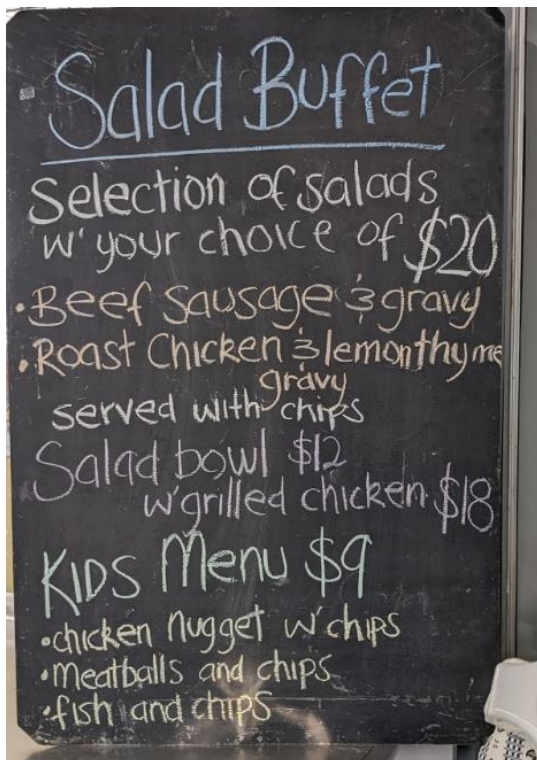 Salad Buffet
Selection of salads
w' your choice of $20
• Beef Sausage & gravy
• Roast Chicken & lemon thyme
gravy
served with chips
Salad bowl $12
w' grilled chicken $18
KIDS Menu $9
• chicken nugget w' chips
• meatballs and chips
• fish and chips